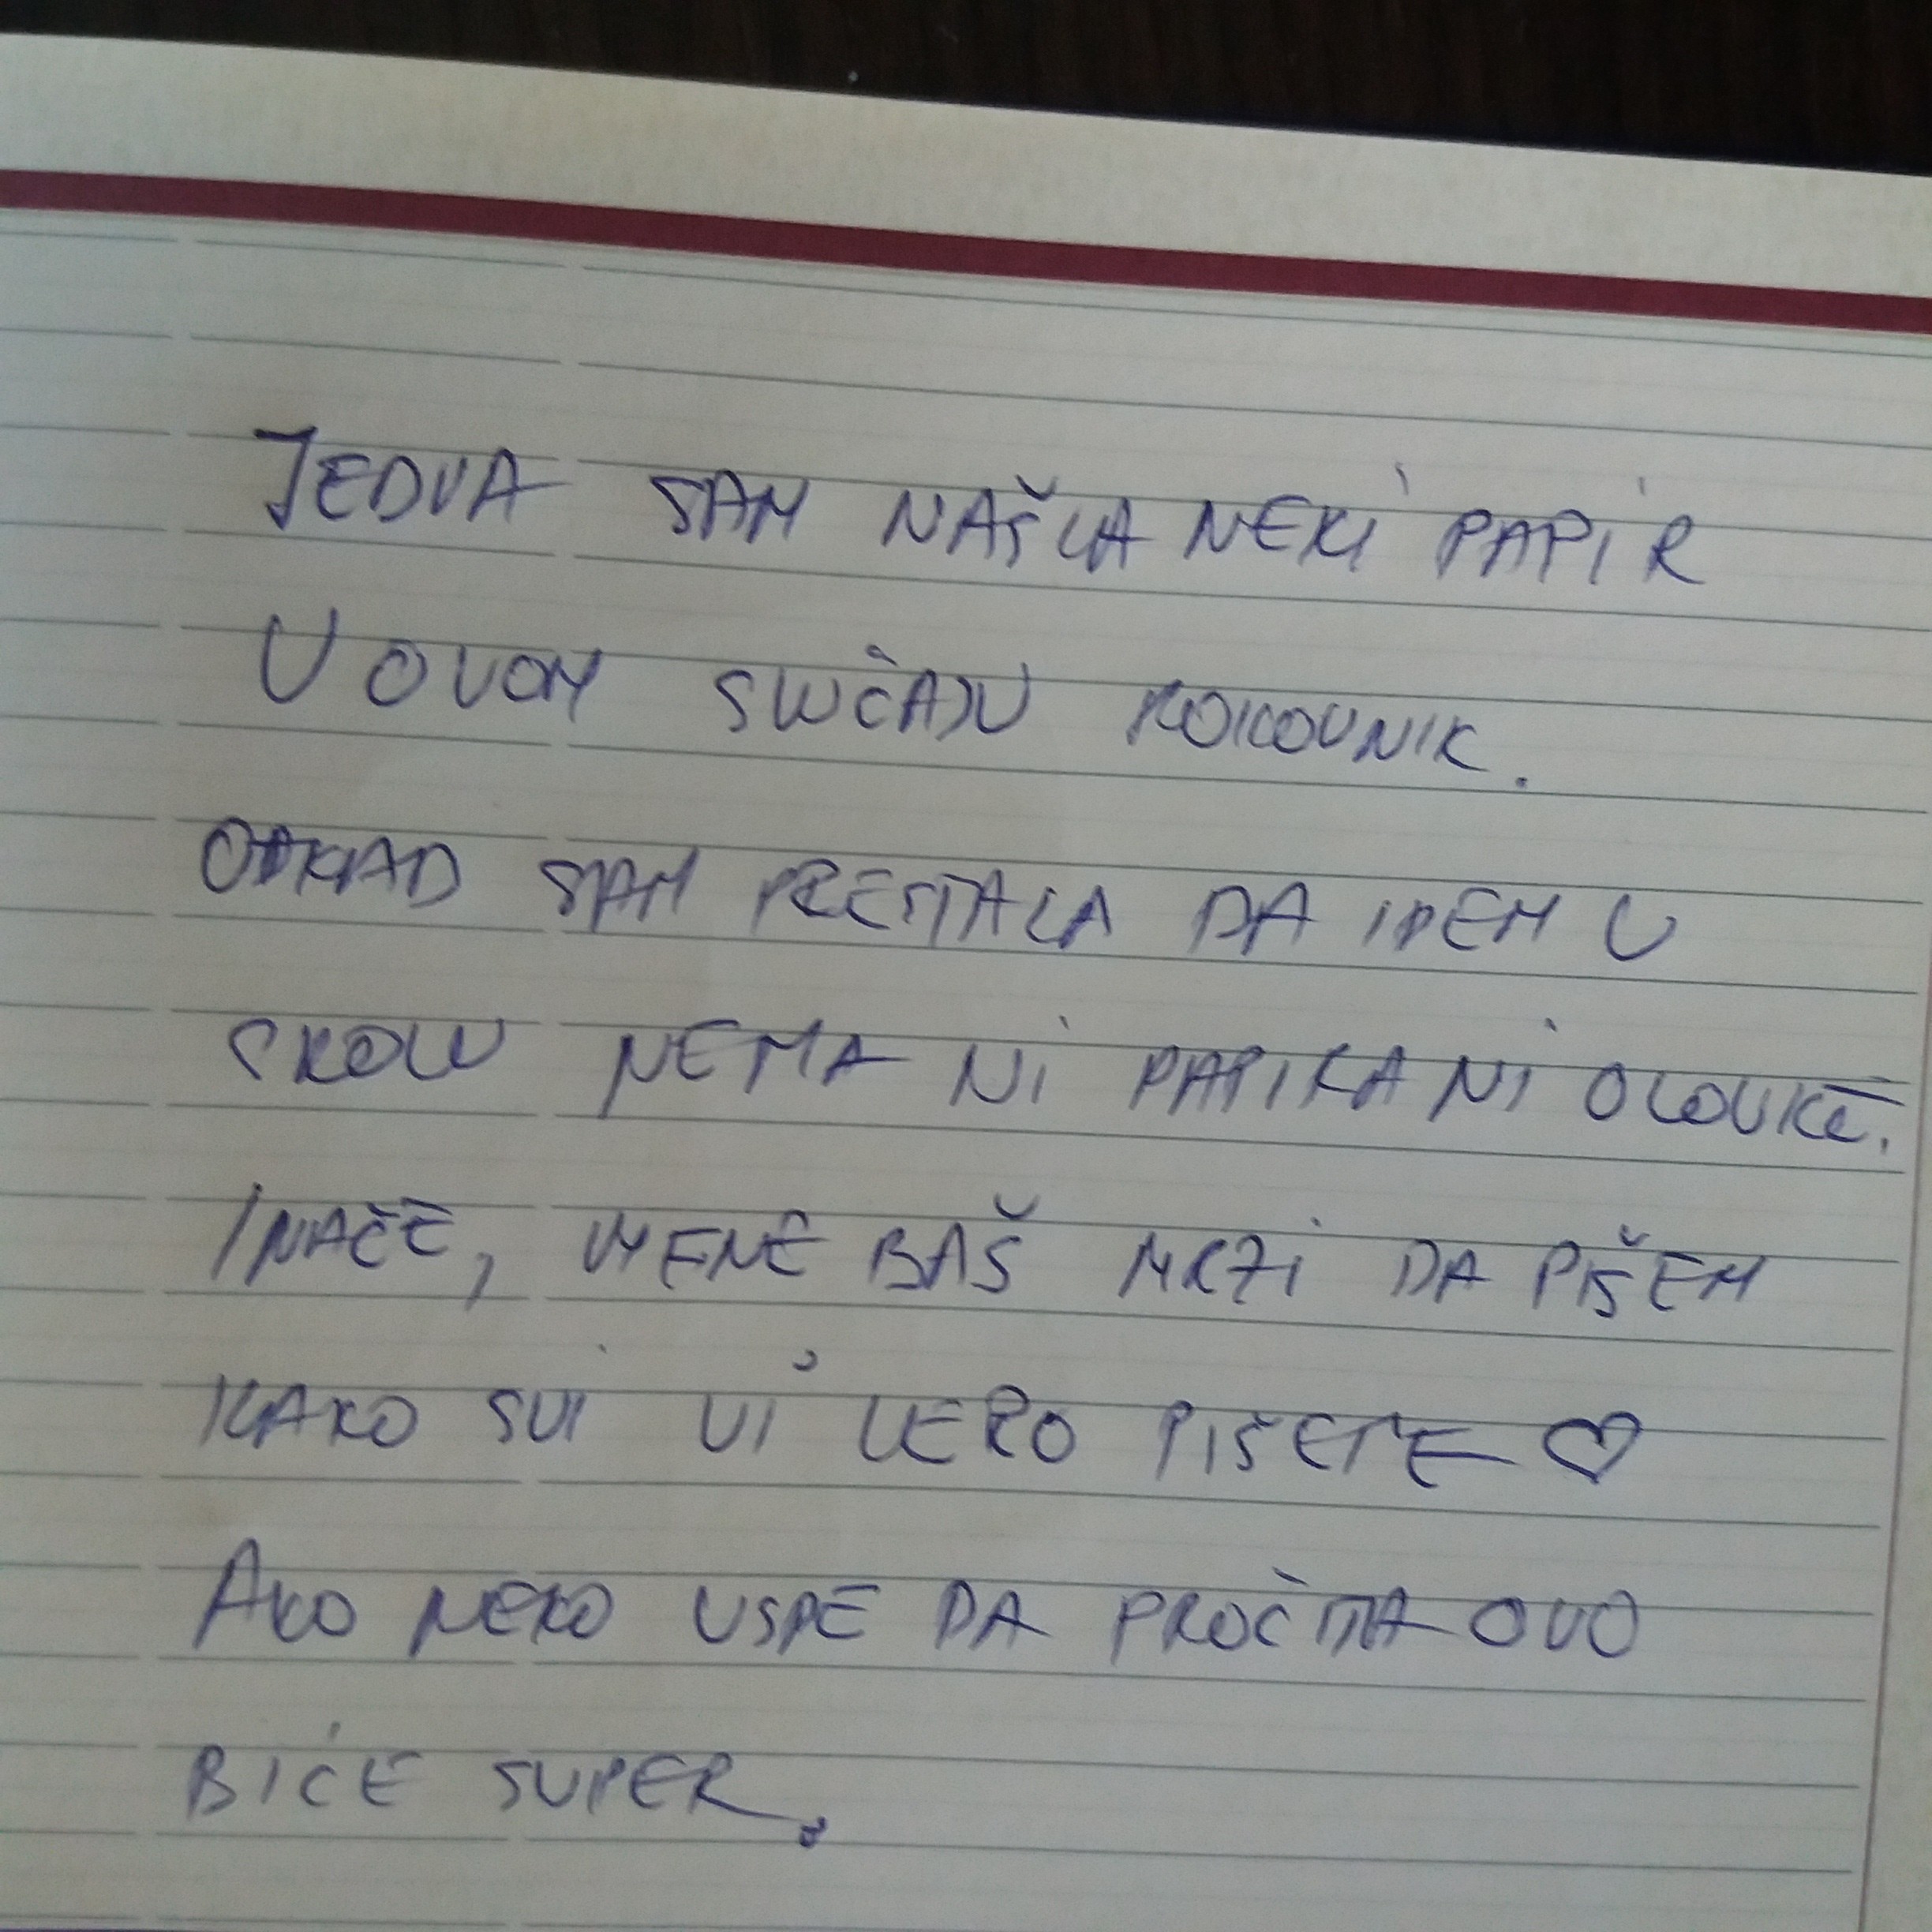 JEDVA SAM NAŠLA NEKI PAPIR
U OVOM SLUČAJU ROKOVNIK.
ODKAD SAM PRESTALA DA IDEM U
SKOLU NEMA NI PAPIRA NI OLOVKE.
INAČE, MENE BAŠ MRZI DA PIŠEM
KAKO SVI VI LEPO PIŠETE ♡
AKO NEKO USPE DA PROČITA OVO
BIĆE SUPER.